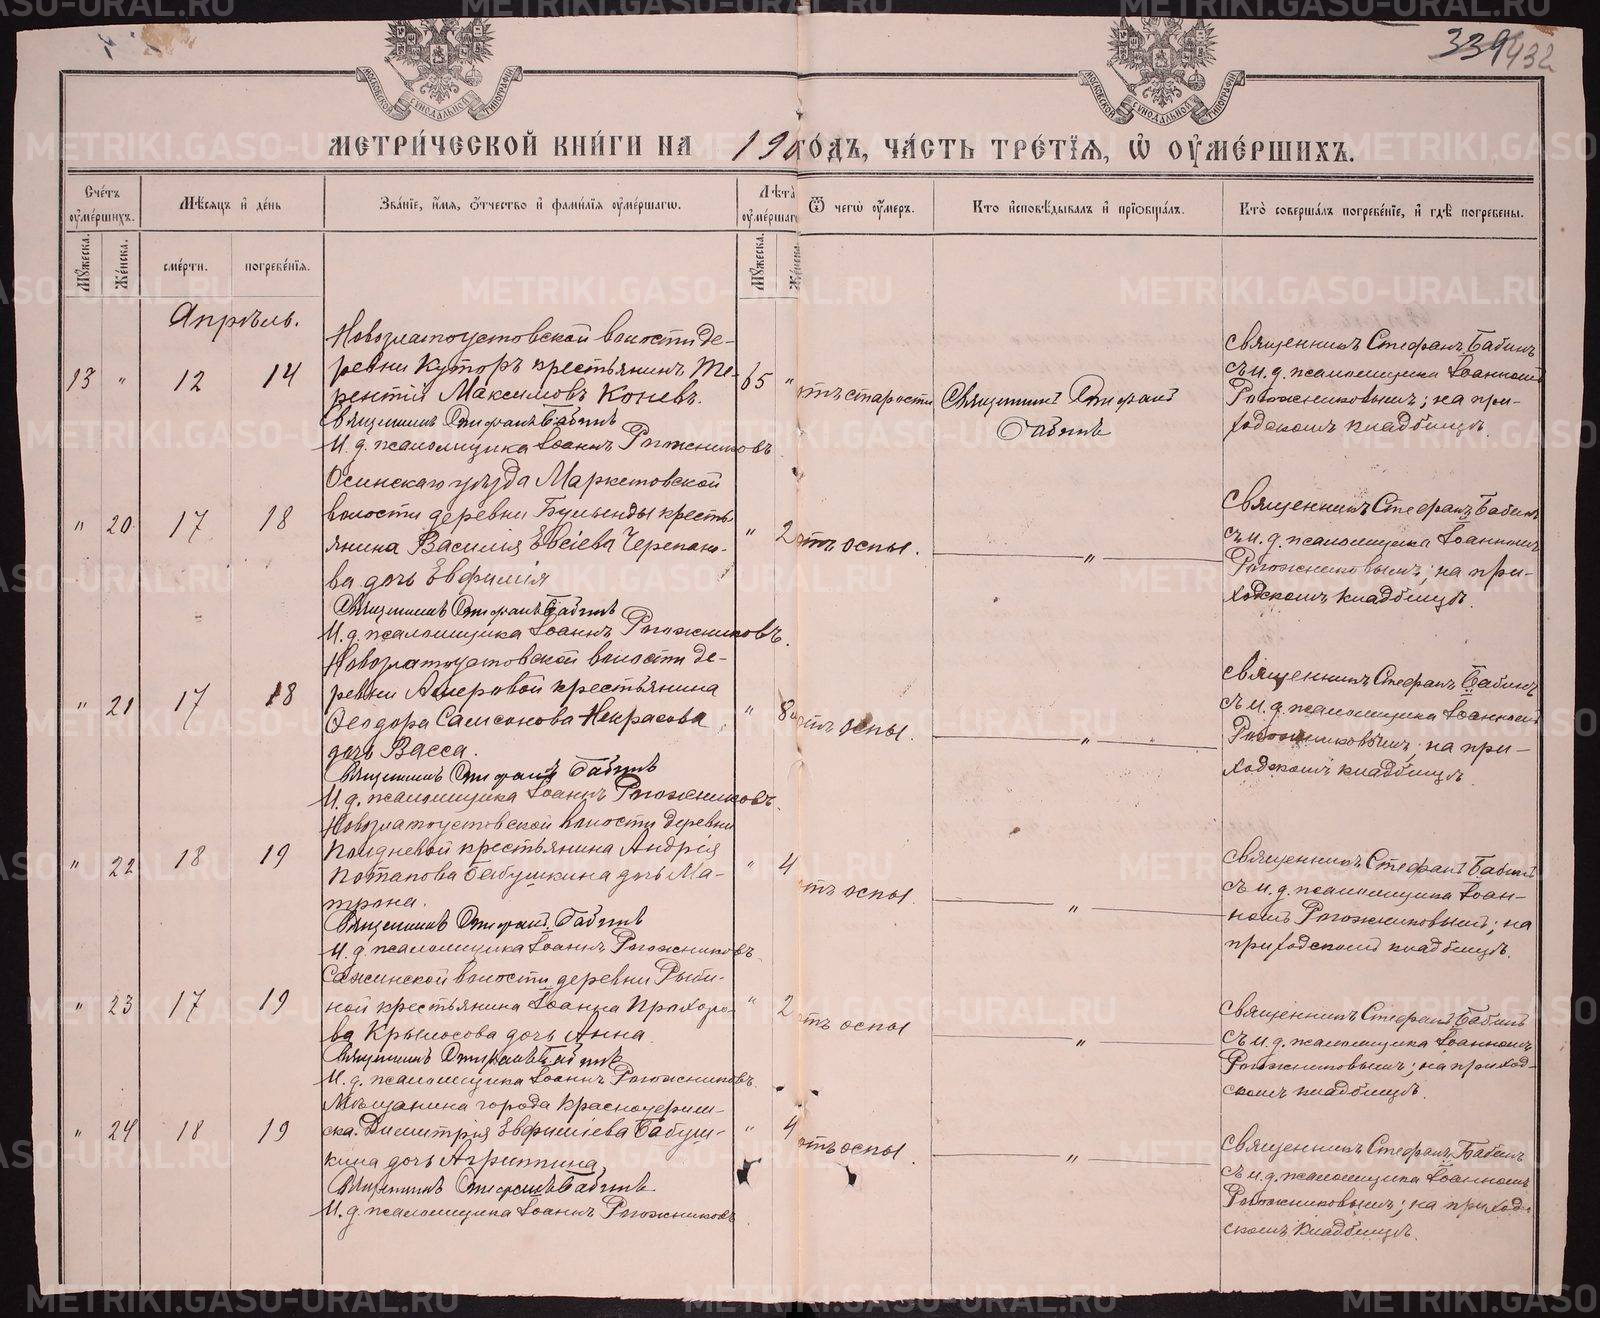 339 432
МОСКОВСКОЙ СѴНОДАЛЬНОЙ ТИПОГРАФІИ
МОСКОВСКОЙ СѴНОДАЛЬНОЙ ТИПОГРАФІИ
МЕТРИ́ЧЕСКОЙ КНИ́ГИ НА 190 ГО́ДЪ, ЧА́СТЬ ТРЕ́ТІЯ, Ѡ ОУМЕ́РШИХЪ.
Сче́тъ оуме́ршихъ.
Мѣсяцъ и день
Зва́ніе, и́мя, о́тчество и фами́лія оуме́ршагѡ.
Лѣта̀ оуме́ршагѡ
Ѿ чегѡ̀ оу́меръ.
Кто̀ исповѣ́дывалъ и пріобща́лъ.
Кто̀ соверша́лъ погребе́ніе, и гдѣ̀ погребены.
Мꙋ́жеска.
Же́нска.
сме́рти.
погребе́нія.
Мꙋ́жеска.
Же́нска.
Апрѣль.
13 " 12 14
Новозлатоустовской волости де-
ревни Куторъ крестьянинъ Те-
рентій Максимовъ Коневъ.
Священникъ Стефанъ Бабинъ
И. д. псаломщика Іоаннъ Рогожниковъ
65 "
отъ старости
Священникъ Стефанъ
Бабинъ
Священникъ Стефанъ Бабинъ
съ и. д. псаломщика Іоанномъ
Рогожниковымъ; на при-
ходскомъ кладбищѣ.
" 20 17 18
Осинскаго уѣзда Маркетовской
волости деревни Бульенды кресть-
янина Василія Евсіева Черепано-
ва дочь Евфимія
Священникъ Стефанъ Бабинъ
И. д. псаломщика Іоаннъ Рогожниковъ.
" 2
отъ оспы.
"
Священникъ Стефанъ Бабинъ
съ и. д. псаломщика Іоанномъ
Рогожниковымъ; на при-
ходскомъ кладбищѣ.
" 21 17 18
Новозлатоустовской волости де-
ревни Амеровой крестьянина
Ѳеодора Самсонова Некрасова
дочь Васса.
Священникъ Стефанъ Бабинъ
И. д. псаломщика Іоаннъ Рогожниковъ.
" 8
отъ оспы.
"
Священникъ Стефанъ Бабинъ
съ и. д. псаломщика Іоанномъ
Рогожниковымъ; на при-
ходскомъ кладбищѣ.
" 22 18 19
Новозлатоустовской волости деревни
Полдневой крестьянина Андрія
Потапова Бабушкина дочь Ма-
трона.
Священникъ Стефанъ Бабинъ
И. д. псаломщика Іоаннъ Рогожниковъ.
" 4
отъ оспы.
"
Священникъ Стефанъ Бабинъ
съ и. д. псаломщика Іоан-
номъ Рогожниковымъ; на
приходскомъ кладбищѣ.
" 23 17 19
Сажинской волости деревни Рыби-
ной крестьянина Іоанна Прохоро-
ва Крылосова дочь Анна.
Священникъ Стефанъ Бабинъ
И. д. псаломщика Іоаннъ Рогожниковъ.
" 2
отъ оспы
"
Священникъ Стефанъ Бабинъ
съ и. д. псаломщика Іоанномъ
Рогожниковымъ; на приход-
скомъ кладбищѣ.
" 24 18 19
Мѣщанина города Красноуфим-
ска Димитрія Евфиміева Бабуш-
кина дочь Агриппина
Священникъ Стефанъ Бабинъ.
И. д. псаломщика Іоаннъ Рогожниковъ.
" 4
отъ оспы.
"
Священникъ Стефанъ Бабинъ
съ и. д. псаломщика Іоанномъ
Рогожниковымъ; на приход-
скомъ кладбищѣ.
METRIKI.GASO-URAL.RU